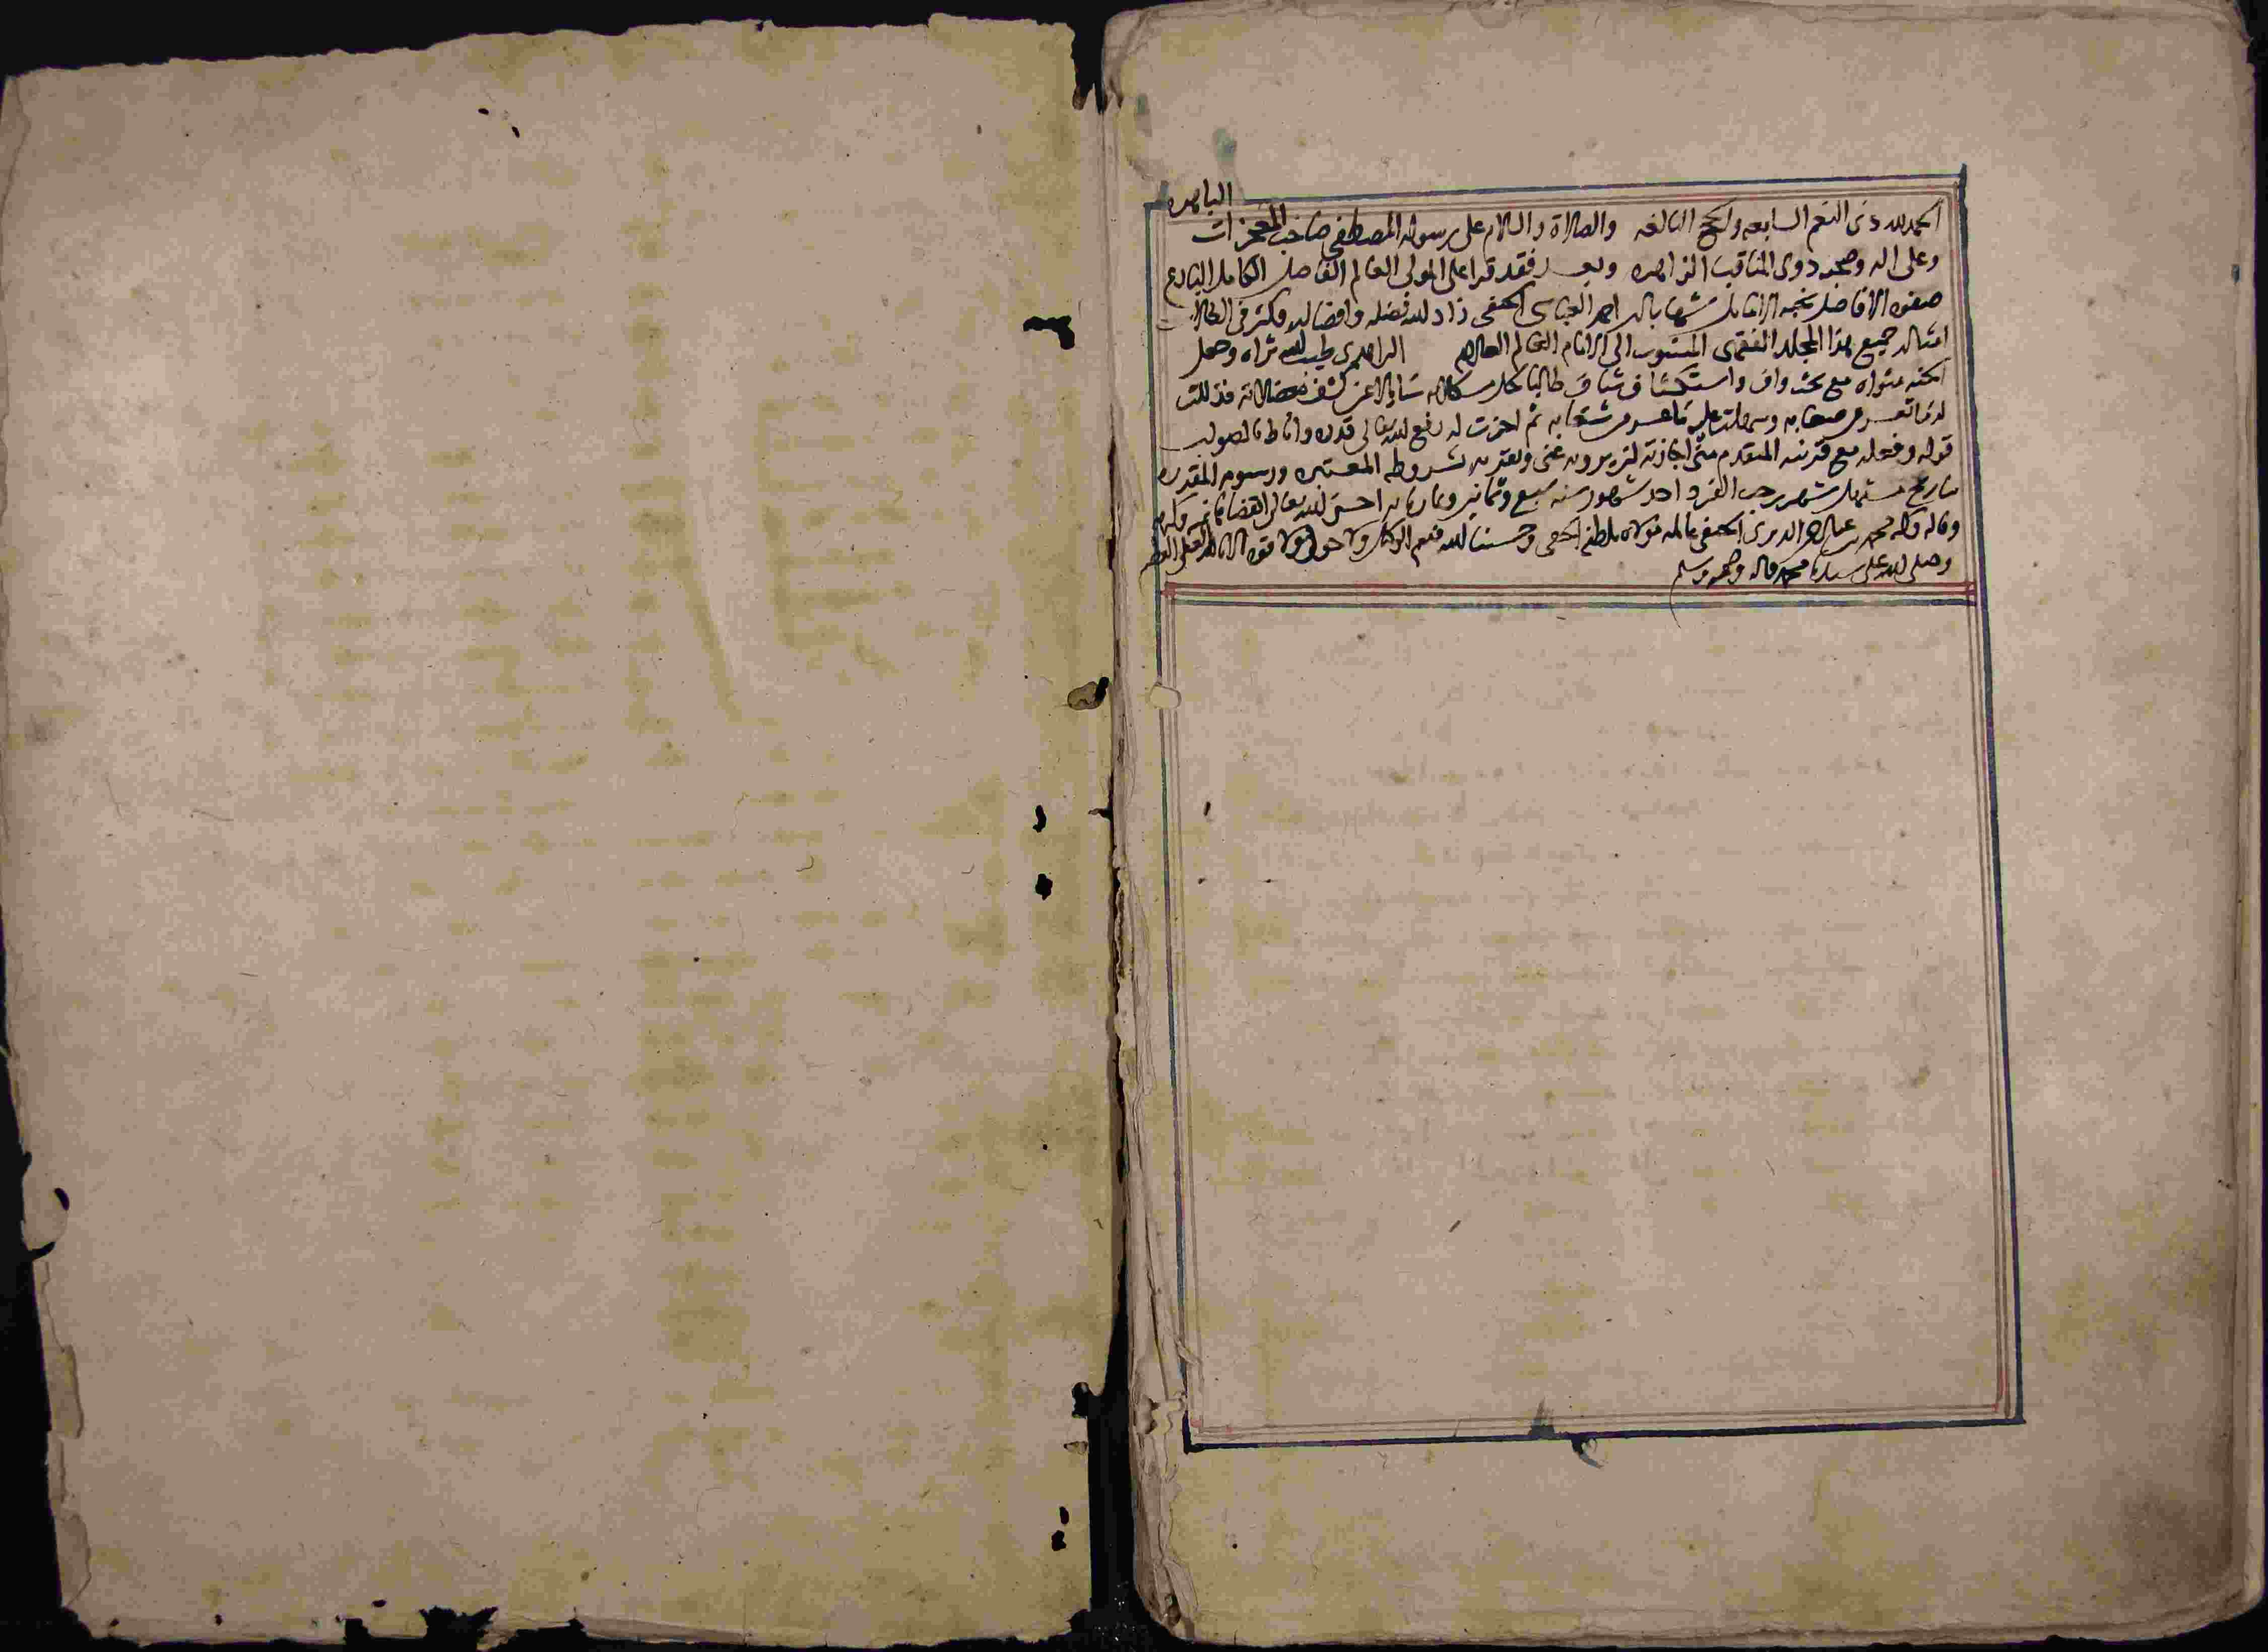 الحمد لله ذى النعم السابغه والحجج البالغه والصلاة والسلام على رسوله المصطفى صاحب المعجزات الباهره
وعلى اله وصحبه ذوى المناقب الزاهره وبعد فقد قرا على المولى العالم الفاضل الكامل البارع
صفوه الافاضل نخبه الاماثل شهاب الدين احمد العباسى الحنفى زاد الله فضله وافضاله وكثر فى
امثاله جميع هذا المجلد الفقهى المنسوب الى الامام العالم العلامه الزاهدى طيب الله ثراه وجعل
الجنه مثواه مع بحث واف واستكشاف شاف طالبا لحل مشكلاته سايلا عن كشف معضلاته فذللت
له ما تعسر من صعابه وسهلت عليه ما عسر من شعابه ثم اجزت له رفع الله تعالى قدره واناط بالصواب
قوله وفعله مع قرينه المتقدم منى اجازته لتزبرونه عنى بشروطه المعتبره ورسومه المقرره
بتاريخ مستهل شهر رجب الفرد احد شهور سنه سبع وثمانين وثمانمايه احسن الله تعالى انقضاها
وقاله وكتبه محمد بن الديرى الحنفى عامله مولاه بلطفه الخفى وحسبنا الله ونعم الوكيل ولا حول ولا قوه الا بالله العلى العظيم
وصلى الله على سيدنا محمد واله وصحبه وسلم